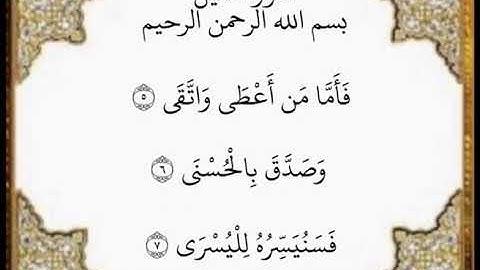 بسم الله الرحمن الرحيم
فَأَمَّا مَن أَعْطَى وَاتَّقَى ٥
وَصَدَّقَ بِالْحُسْنَى ٦
فَسَنُيَسِّرُهُ لِلْيُسْرَى ٧